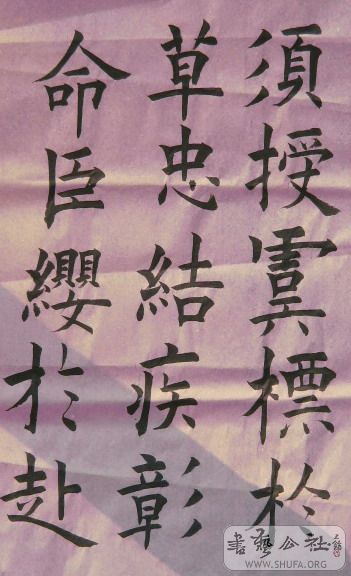 須授標於
草忠結疾彰
命臣纓於赴
書藝公社
WWW.SHUFA.ORG